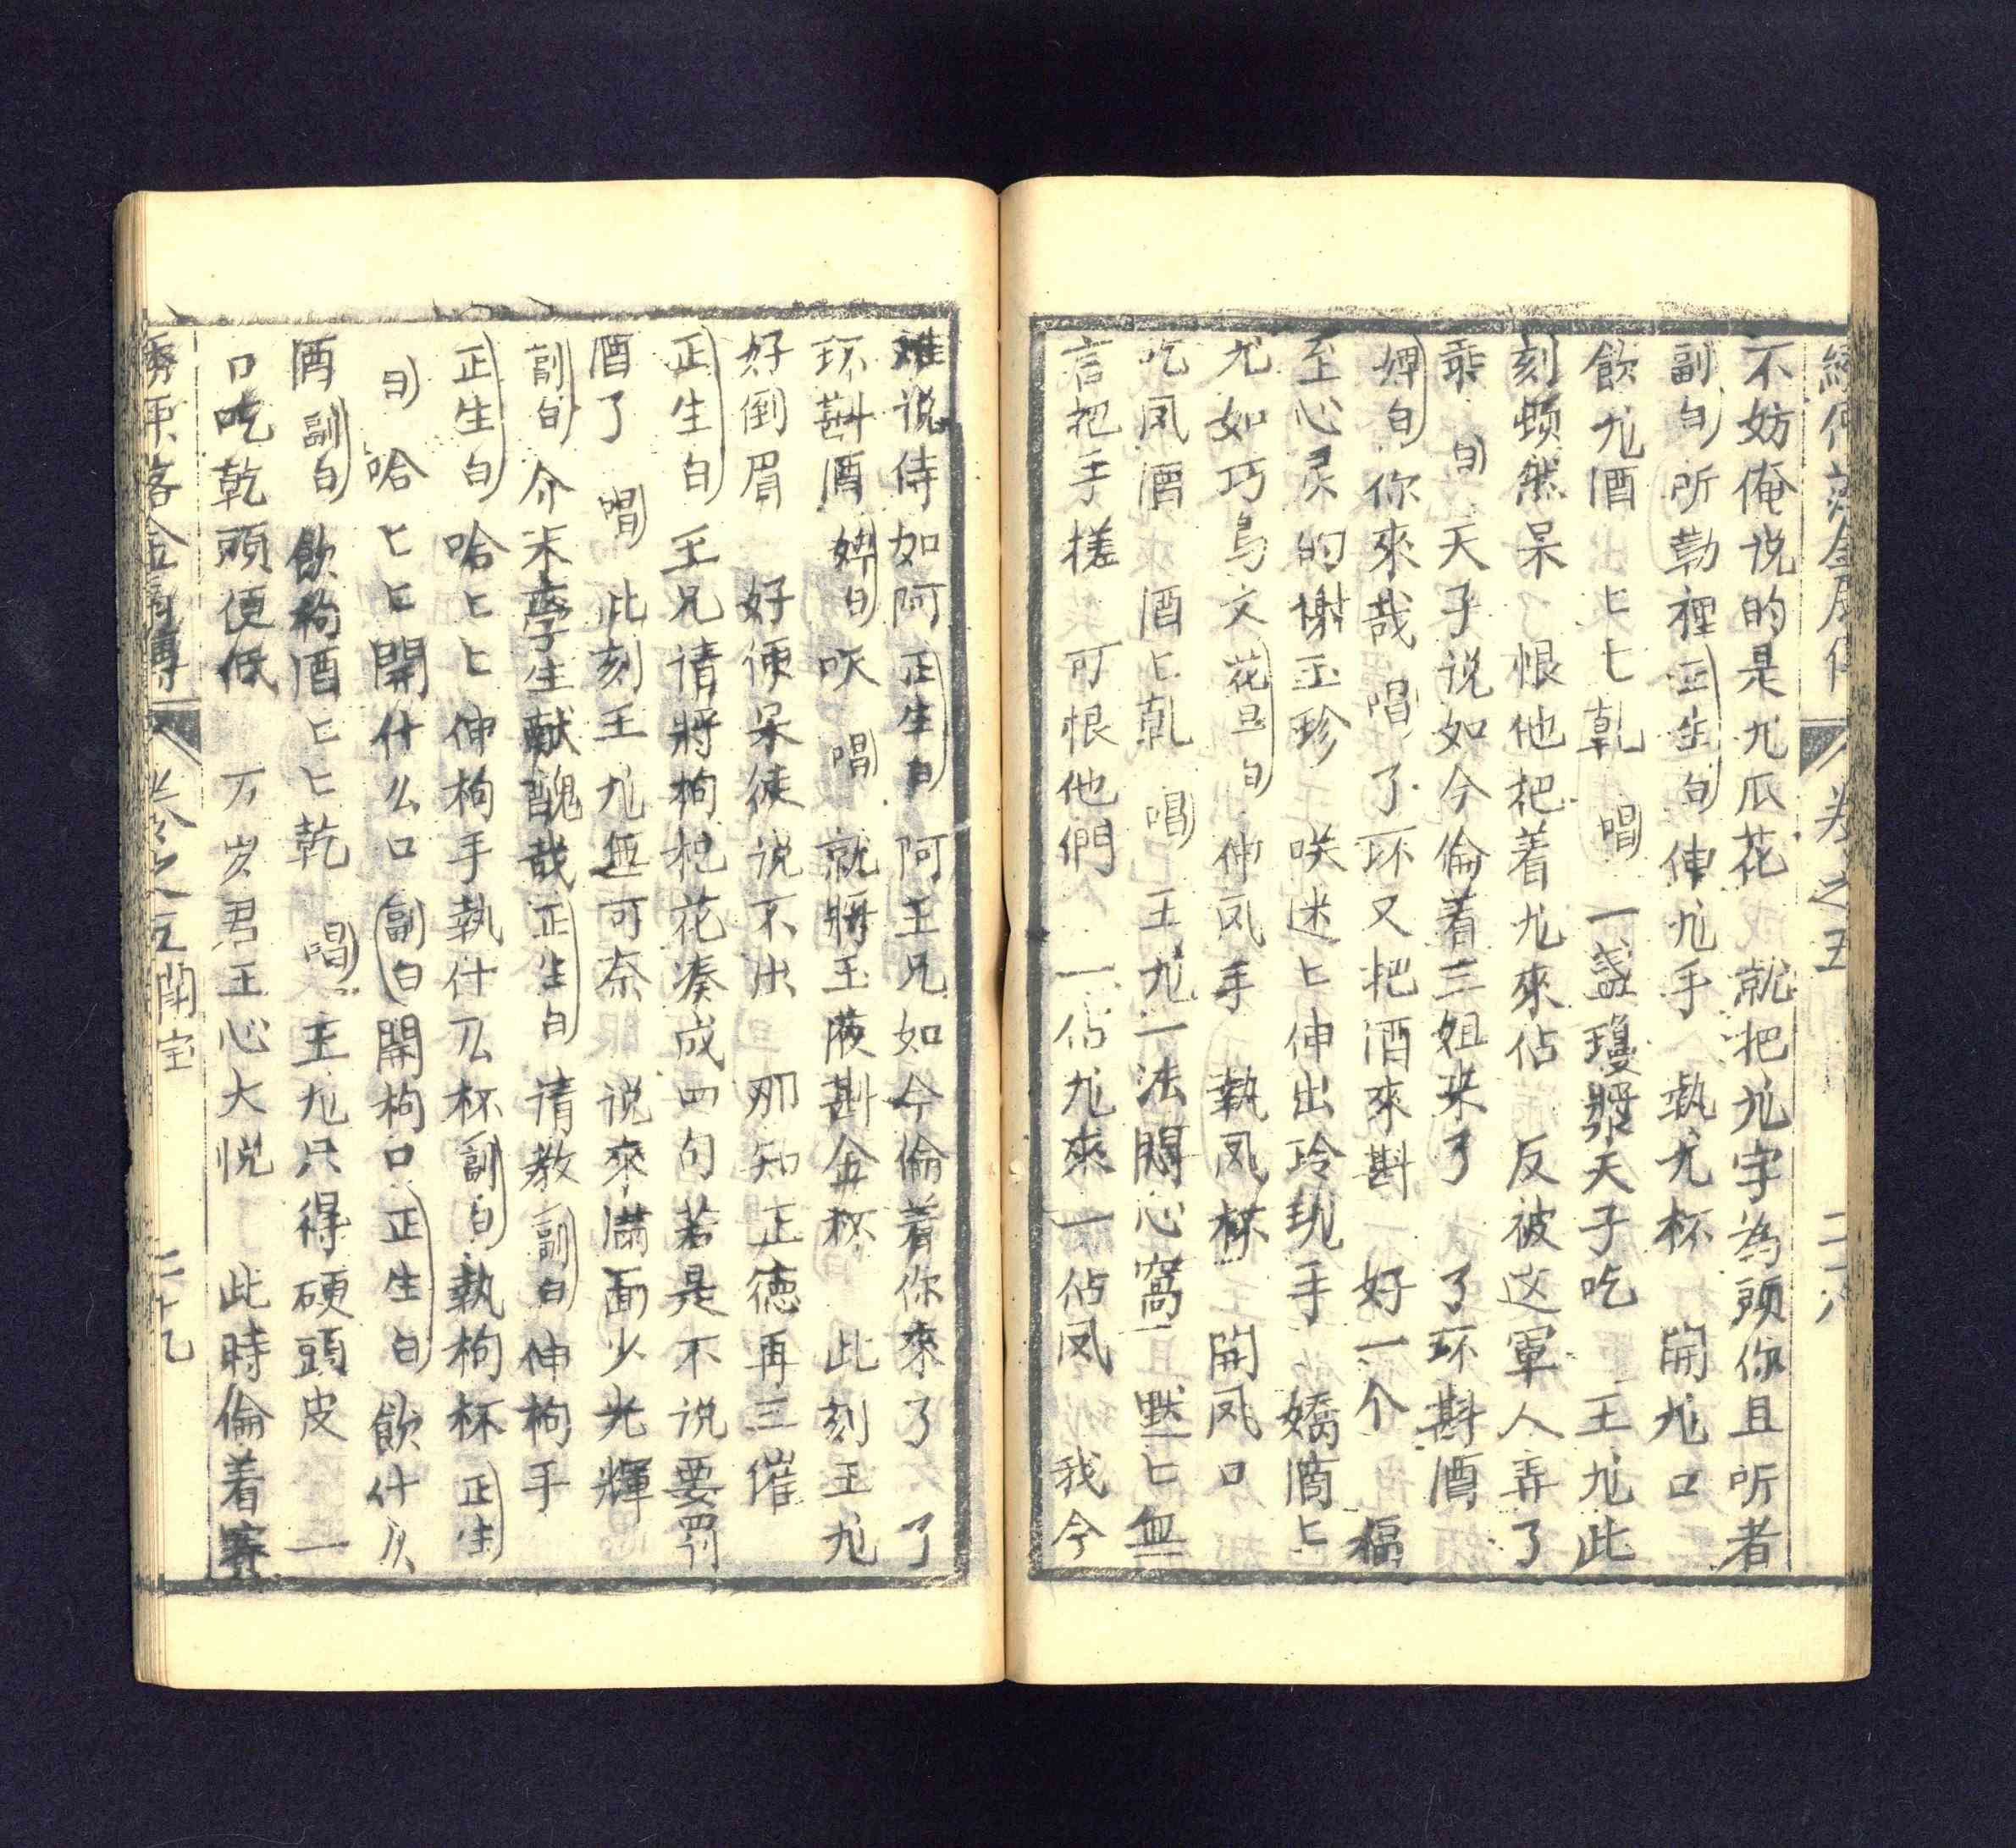 不妨俺说的是尤瓜花　就把尤字為頭你且听者
副白所勒裡正生白伸尤手　執尤杯　開尤口
飲尤酒　上匕匕乹　唱　一盞瓊漿天子吃　王尤此
刻頓然呆　恨他把着尤來佔　反被这軍人弄了
乖　白　天子说如今倫着三姐来了　了环斟酒
婢白你來哉　唱　了环又把酒來斟　好一个　福
至心灵的謝玉珍　咲迷匕伸出玲珑手　嬌滴匕
尤如巧鳥文　花旦白　伸凤手　執凤杯　開凤口
吃凤酒　酒匕乹　唱　王尤一法悶心窩　默匕無
言把手搓　可恨他們　一佔尤來一佔凤　我今
卷之五　二十八
难说侍如阿　正生白　阿王兄如今倫着你來了　了
环斟酒　婢白　咲　唱　就將玉液斟金杯　此刻王尤
好倒眉　好便呆徒说不出　那知正德再三催
正生白　王兄请將枸杞花凑成四句若是不说要罚
酒了　唱　此刻王尤無可奈　说來滿面少光輝
副白　介末學生献醜哉　正生白　请教　副白　伸枸手
正生白　哈匕匕伸枸手執什么杯　副白　執枸杯　正生
白　哈匕匕開什么口　副白　開枸口　正生白　飲什么
酒　副白　飲枸酒匕匕乾　唱　王尤只得硬頭皮　一
口吃乾頭便低　万岁君王心大悦　此時倫着賽
卷之五　開宝　二十九